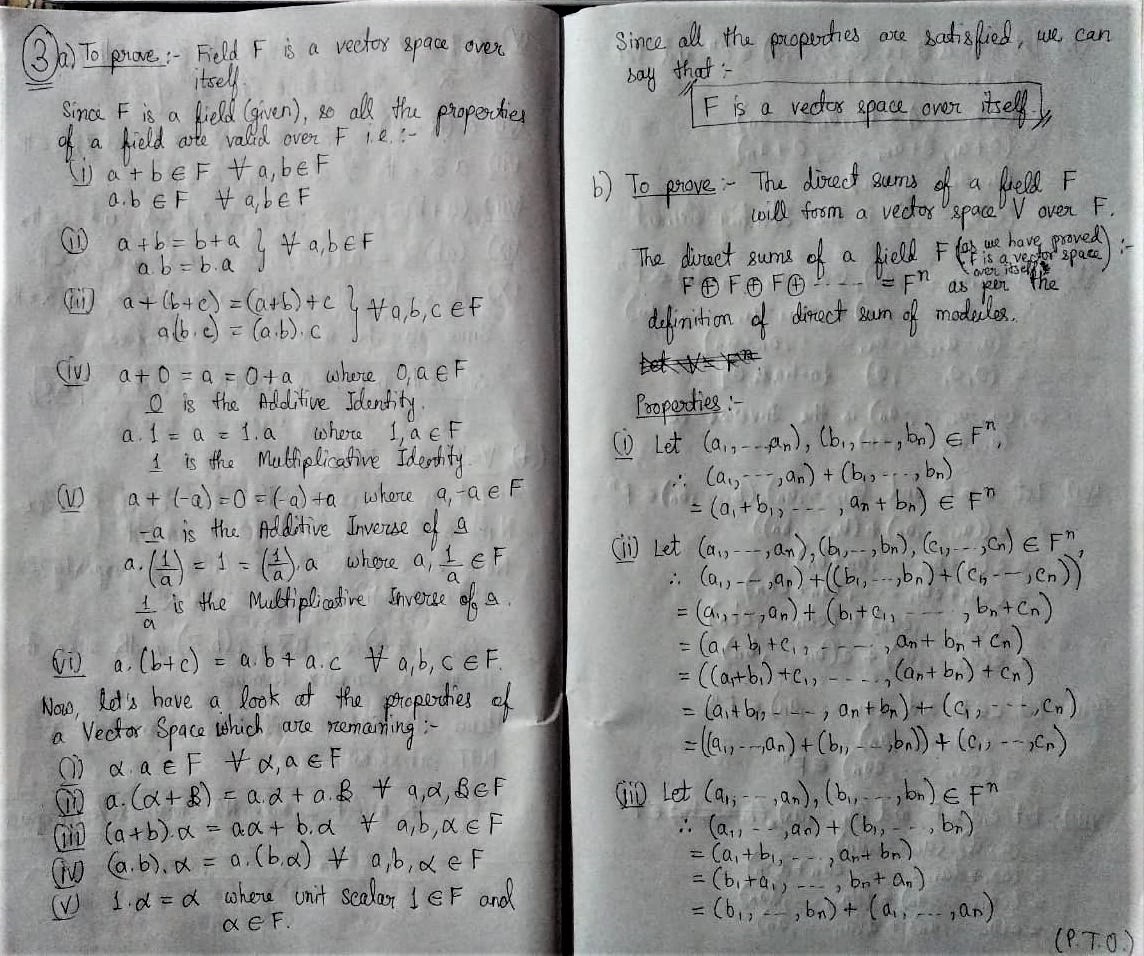 ③ a) To prove :- Field F is a vector space over
itself.
Since F is a field (given), so all the properties
of a field are valid over F i.e. :-
(i) a + b ∈ F ∀ a, b ∈ F
a.b ∈ F ∀ a, b ∈ F
(ii) a + b = b + a } ∀ a, b ∈ F
a.b = b.a
(iii) a + (b + c) = (a+b) + c } ∀ a, b, c ∈ F
a(b.c) = (a.b).c
(iv) a + 0 = a = 0 + a where 0, a ∈ F
0 is the Additive Identity.
a.1 = a = 1.a where 1, a ∈ F
1 is the Multiplicative Identity.
(v) a + (-a) = 0 = (-a) + a where a, -a ∈ F
-a is the Additive Inverse of a
a.(1/a) = 1 = (1/a).a where a, 1/a ∈ F
1/a is the Multiplicative Inverse of a.
(vi) a.(b+c) = a.b + a.c ∀ a, b, c ∈ F.
Now, let's have a look at the properties of
a Vector Space which are remaining :-
(i) α.a ∈ F ∀ α, a ∈ F
(ii) a.(α + β) = a.α + a.β ∀ a, α, β ∈ F
(iii) (a+b).α = a.α + b.α ∀ a, b, α ∈ F
(iv) (a.b).α = a.(b.α) ∀ a, b, α ∈ F
(v) 1.α = α where unit scalar 1 ∈ F and
α ∈ F.
Since all the properties are satisfied, we can
say that :-
F is a vector space over itself.
b) To prove :- The direct sums of a field F
will form a vector space V over F.
The direct sums of a field F (as we have proved F is a vector space over itself) :-
F ⊕ F ⊕ F ⊕ ---- = Fⁿ as per the
definition of direct sum of modules.
Let V = Fⁿ.
Properties :-
(i) Let (a₁, --, aₙ), (b₁, ---, bₙ) ∈ Fⁿ,
∴ (a₁, ---, aₙ) + (b₁, ---, bₙ)
= (a₁ + b₁, ----, aₙ + bₙ) ∈ Fⁿ
(ii) Let (a₁, ---, aₙ), (b₁, --, bₙ), (c₁, --, cₙ) ∈ Fⁿ,
∴ (a₁, --, aₙ) + ((b₁, ---, bₙ) + (c₁, --, cₙ))
= (a₁, --, aₙ) + (b₁ + c₁, ----, bₙ + cₙ)
= (a₁ + b₁ + c₁, -----, aₙ + bₙ + cₙ)
= ((a₁+b₁) + c₁, ----, (aₙ+bₙ) + cₙ)
= (a₁+b₁, ----, aₙ+bₙ) + (c₁, ---, cₙ)
= ((a₁, --, aₙ) + (b₁, --, bₙ)) + (c₁, --, cₙ)
(iii) Let (a₁, --, aₙ), (b₁, ---, bₙ) ∈ Fⁿ
∴ (a₁, --, aₙ) + (b₁, --, bₙ)
= (a₁ + b₁, ---, aₙ + bₙ)
= (b₁ + a₁, ---, bₙ + aₙ)
= (b₁, --, bₙ) + (a₁, ---, aₙ)
(P.T.O.)